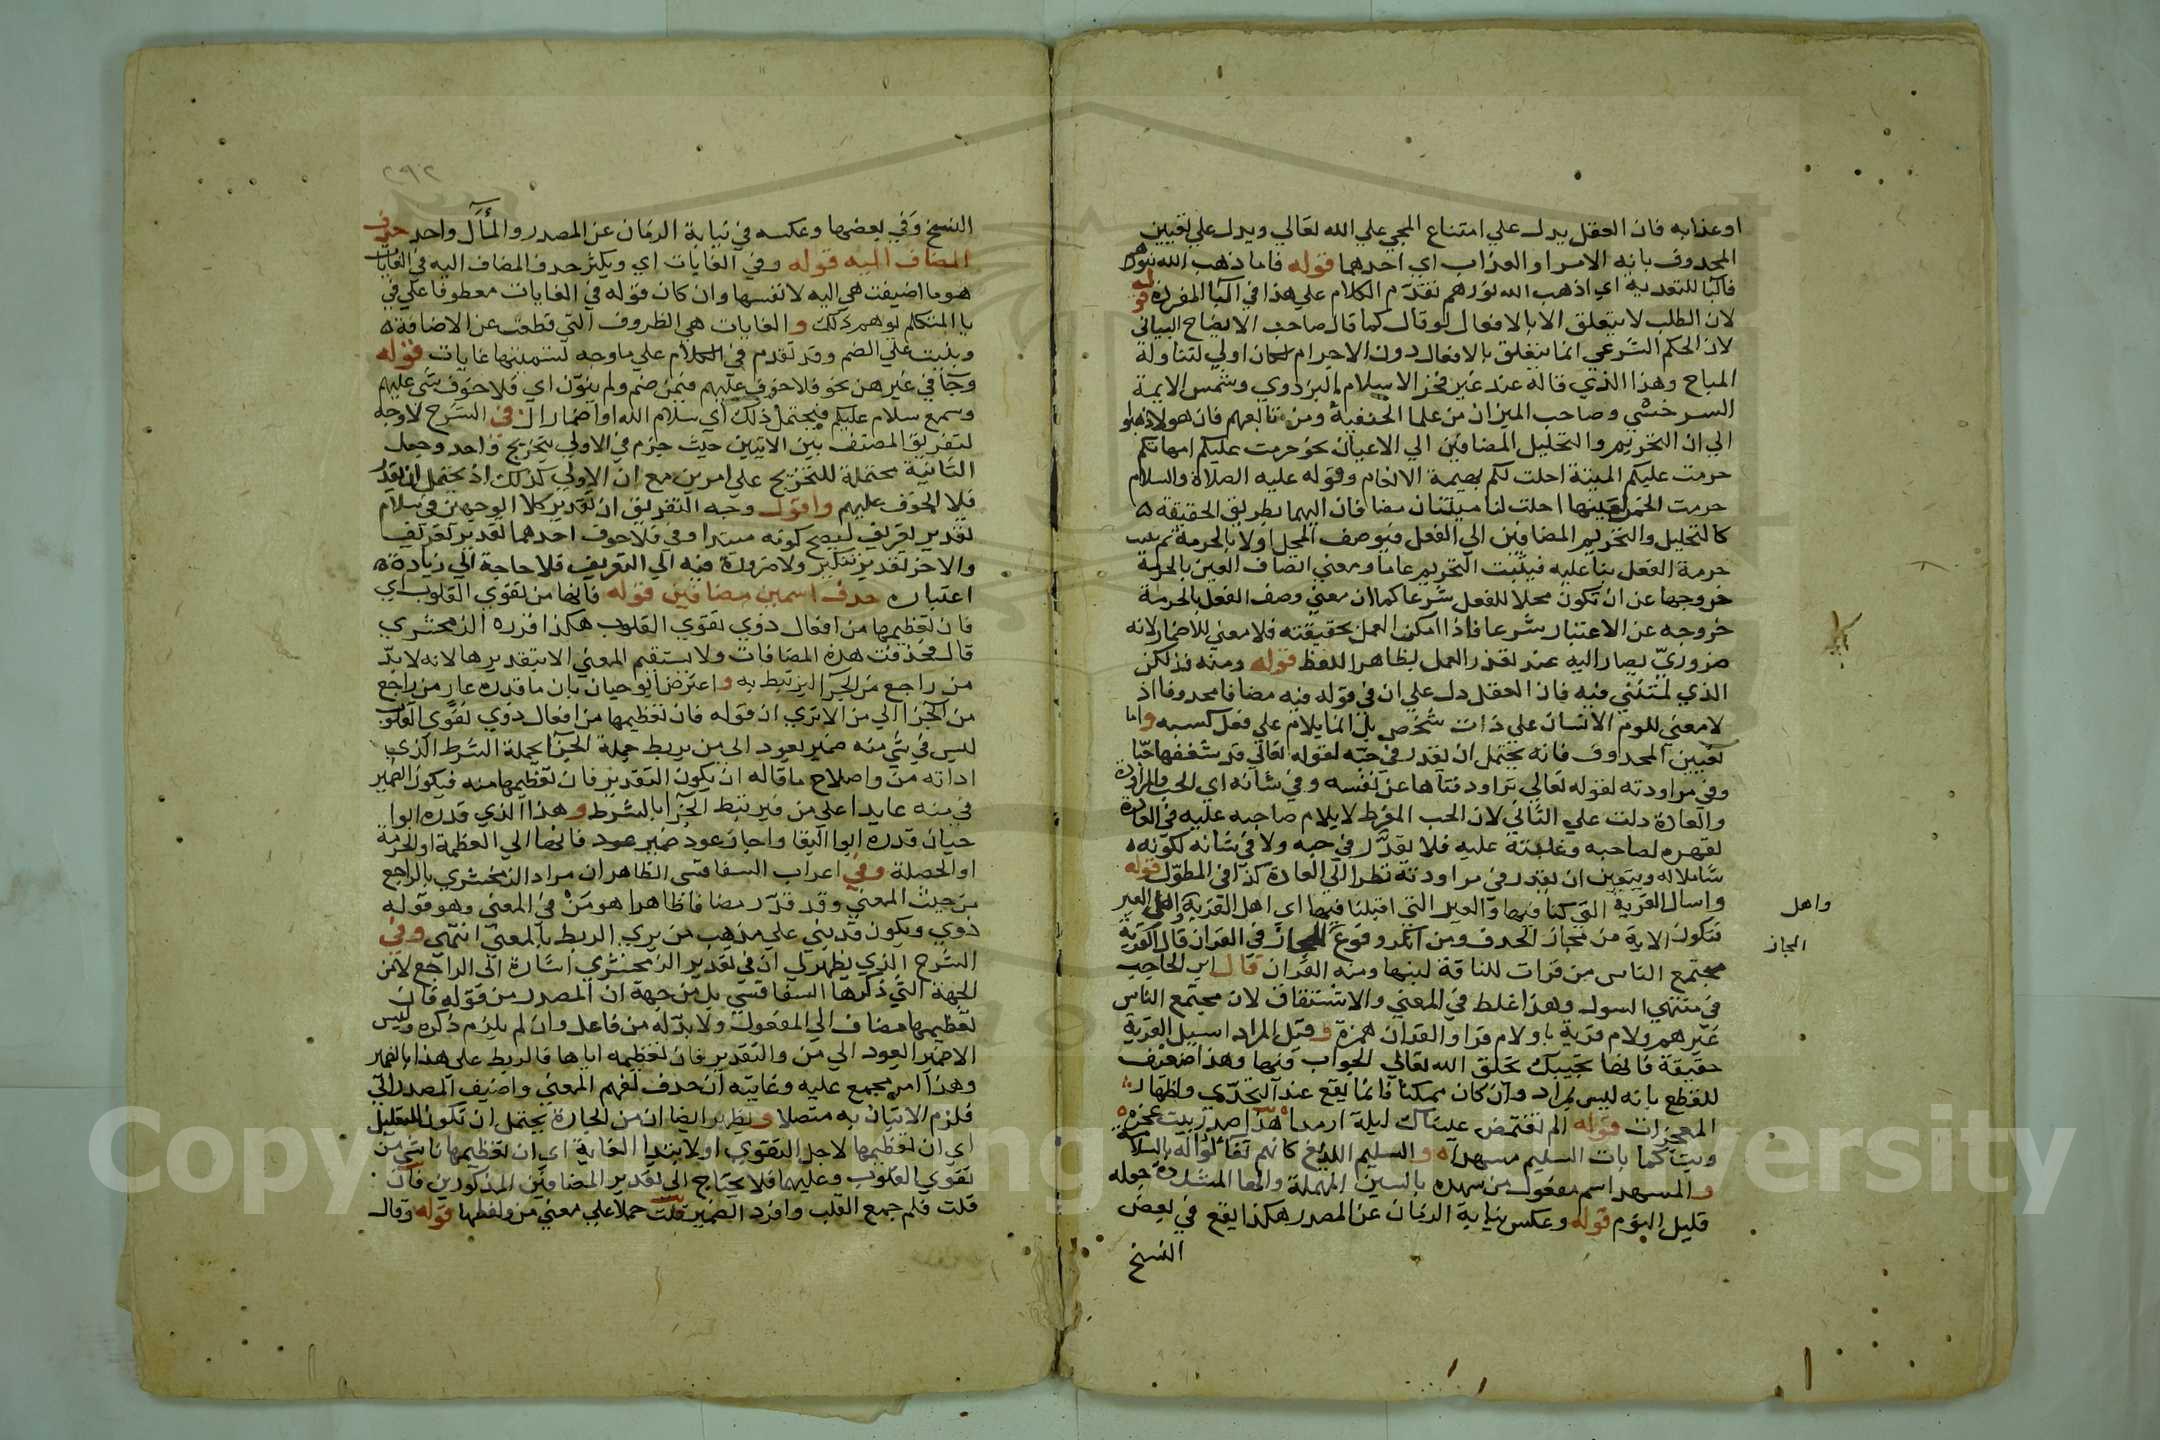 او عذابه فان العقل يدل علي امتناع المجي علي الله تعالي ويدل علي تعيين
المحذوف بانه الامر او العذاب اي احدهما قوله فاما ذهب الله بنورهم
فالبا للتعدية اي اذهب الله نورهم تقدم الكلام علي هذا في البا المفردة قوله
لان الطلب لا يتعلق الا بالافعال لو قال كما قال صاحب الايضاح البياني
لان الحكم الشرعي انما يتعلق بالافعال دون الاجرام لكان اولي لتناوله
المباح وهذا الذي قاله عند غير فخر الاسلام البزدوي وشمس الايمة
السرخسي وصاحب الميزان من علما الحنفية ومن تابعهم فان هولا ذهبوا
الي ان التحريم والتحليل المضافين الي الاعيان نحو حرمت عليكم امهاتكم
حرمت عليكم الميتة احلت لكم بهيمة الانعام وقوله عليه الصلاة والسلام
حرمت الخمر لعينها احلت لنا ميتتان مضافان اليهما بطريق الحقيقة
كالتحليل والتحريم المضافين الي الفعل فيوصف المحل اولا بالحرمة ثم تثبت
حرمة الفعل بنا عليه فيثبت التحريم عاما ومعني اتصاف العين بالحرمة
خروجها عن ان تكون محلا للفعل شرعا كما ان معني وصف الفعل بالحرمة
خروجه عن الاعتبار شرعا فاذا امكن العمل بحقيقته فلا معني للاضمار لانه
ضروري يصار اليه عند تعذر العمل بظاهر اللفظ قوله ومنه فذلكن
الذي لمتنني فيه فان العقل دل علي ان في قوله فيه مضافا محذوفا اذ
لا معني للوم الانسان علي ذات شخص بل انما يلام علي فعل كسبه واما
تعيين المحذوف فانه يحتمل ان يقدر في حبه لقوله تعالي قد شغفها حبا
وفي مراودته لقوله تعالي تراود فتاها عن نفسه وفي شانه اي الحب والمراودة
والعادة دلت علي الثاني لان الحب المفرط لا يلام صاحبه عليه في العادة
لقهره لصاحبه وغلبته عليه فلا يقدر في حبه ولا في شانه لكونه
شاملا له ويتعين ان يقدر في مراودته نظرا الي العادة كذا في المطول قوله
واسال القرية التي كنا فيها والعير التي اقبلنا فيها اي اهل القرية واهل العير
واهل
فتكون الاية من مجاز الحذف ومن انكر وقوع المجاز في القران قال القرية
المجاز
مجتمع الناس من قرات للناقة لبنها ومنه القران قال ابن الحاجب
في منتهي السول وهذا غلط في المعني والاشتقاق لان مجتمع الناس
غيرهم ولام قرية يا ولام قرا والقران همزة وقيل المراد اسيل القرية
حقيقة فانها تجيبك بخلق الله تعالي الجواب فيها وهذا ضعيف
للقطع بانه ليس بمراد وان كان ممكنا فانما يقع عند التحدي واظهار
المعجزات قوله الم تغتمض عيناك ليلة ارمدا هذا صدر بيت عجزه
وبت كما بات السليم مسهدا والسليم اللديغ كانهم تفاءلوا له بالسلامة
والمسهد اسم مفعول من سهده بالسين المهملة والها المشددة جعله
قليل النوم قوله وعكس نيابة الزمان عن المصدر هكذا يقع في بعض
النسخ
٢٩٢
النسخ وفي بعضها وعكسه في نيابة الزمان عن المصدر والمآل واحد حذف
المضاف اليه قوله وفي الغايات اي ويكثر حذف المضاف اليه في الغايات
هو ما اضيفت هي اليه لا نفسها وان كان قوله في الغايات معطوفا علي في
يا المتكلم توهم ذلك والغايات هي الظروف التي قطعت عن الاضافة
وبنيت علي الضم وقد تقدم في الكلام علي ما وجه تسميتها غايات قوله
وجا في غيرهن نحو فلا خوف عليهم فيمن ضم ولم ينون اي فلا خوف شي عليهم
وسمع سلام عليكم فيحتمل ذلك اي سلام الله او اضمار ال في الشرح لا وجه
لتفريق المصنف بين الايتين حيث جزم في الاولي بتخريج واحد وجعل
الثانية محتملة للتخريج علي امرين مع ان الاولي كذلك اذ يحتمل ان يقدر
فلا الخوف عليهم واقول وجه التفريق ان تقدير كلا الوجهين في سلام
تقدير تعريف ليصح كونه مبتدا وفي فلا خوف احدهما تقدير تعريف
والاخر تقدير تنكير ولا ضرورة فيه الي التعريف فلا حاجة الي زيادة
اعتباره حذف اسمين مضافين قوله فانها من تقوي القلوب اي
فان تعظيمها من افعال ذوي تقوي القلوب هكذا قرره الزمخشري
قال فحذفت هذه المضافات ولا يستقيم المعني الا بتقديرها لانه لا بد
من راجع من الجزا ليرتبط به واعترض ابو حيان بان ما قدره عار من راجع
من الجزا الي من الا تري ان قوله فان تعظيمها من افعال ذوي تقوي القلوب
ليس في شي منه ضمير يعود الي من يربط جملة الجزا بجملة الشرط الذي
اداته من واصلاح ما قاله ان يكون التقدير فان تعظيمها منه فيكون الضمير
في منه عايدا علي من فيرتبط الجزا بالشرط وهذا الذي قدره ابوا
حيان قدره ابوا البقا واجاز عود ضمير فانها الي العظمة او الحرمة
او الخصلة وفي اعراب السفاقسي الظاهر ان مراد الزمخشري بالراجع
من حيث المعني وقد قدر مضافا ظاهرا هو من في المعني وهو قوله
ذوي ويكون قد بني علي مذهب من يري الربط بالمعني انتهي وفي
الشرح الذي يظهر لي ان في تقدير الزمخشري اشارة الي الراجع لا من
الجهة التي ذكرها السفاقسي بل من جهة ان المصدر من قوله فان
تعظيمها مضاف الي المفعول ولا بد له من فاعل وان لم يلزم ذكره وليس
الا ضمير العود الي من والتقدير فان تعظيمه اياها فالربط علي هذا بالضمير
وهذا امر مجمع عليه وغايته ان حذف لفهم المعني واضيف المصدر الي
فلزم الاتيان به متصلا ويظهر ايضا ان من الجارة يحتمل ان تكون للتعليل
اي ان تعظيمها لاجل التقوي او لابتدا الغاية اي ان تعظيمها ناشي من
تقوي القلوب وعليهما فلا يحتاج الي تقدير المضافين المذكورين فان
قلت فلم جمع القلب وافرد الضمير قلت حملا علي معني من ولفظها قوله وقال